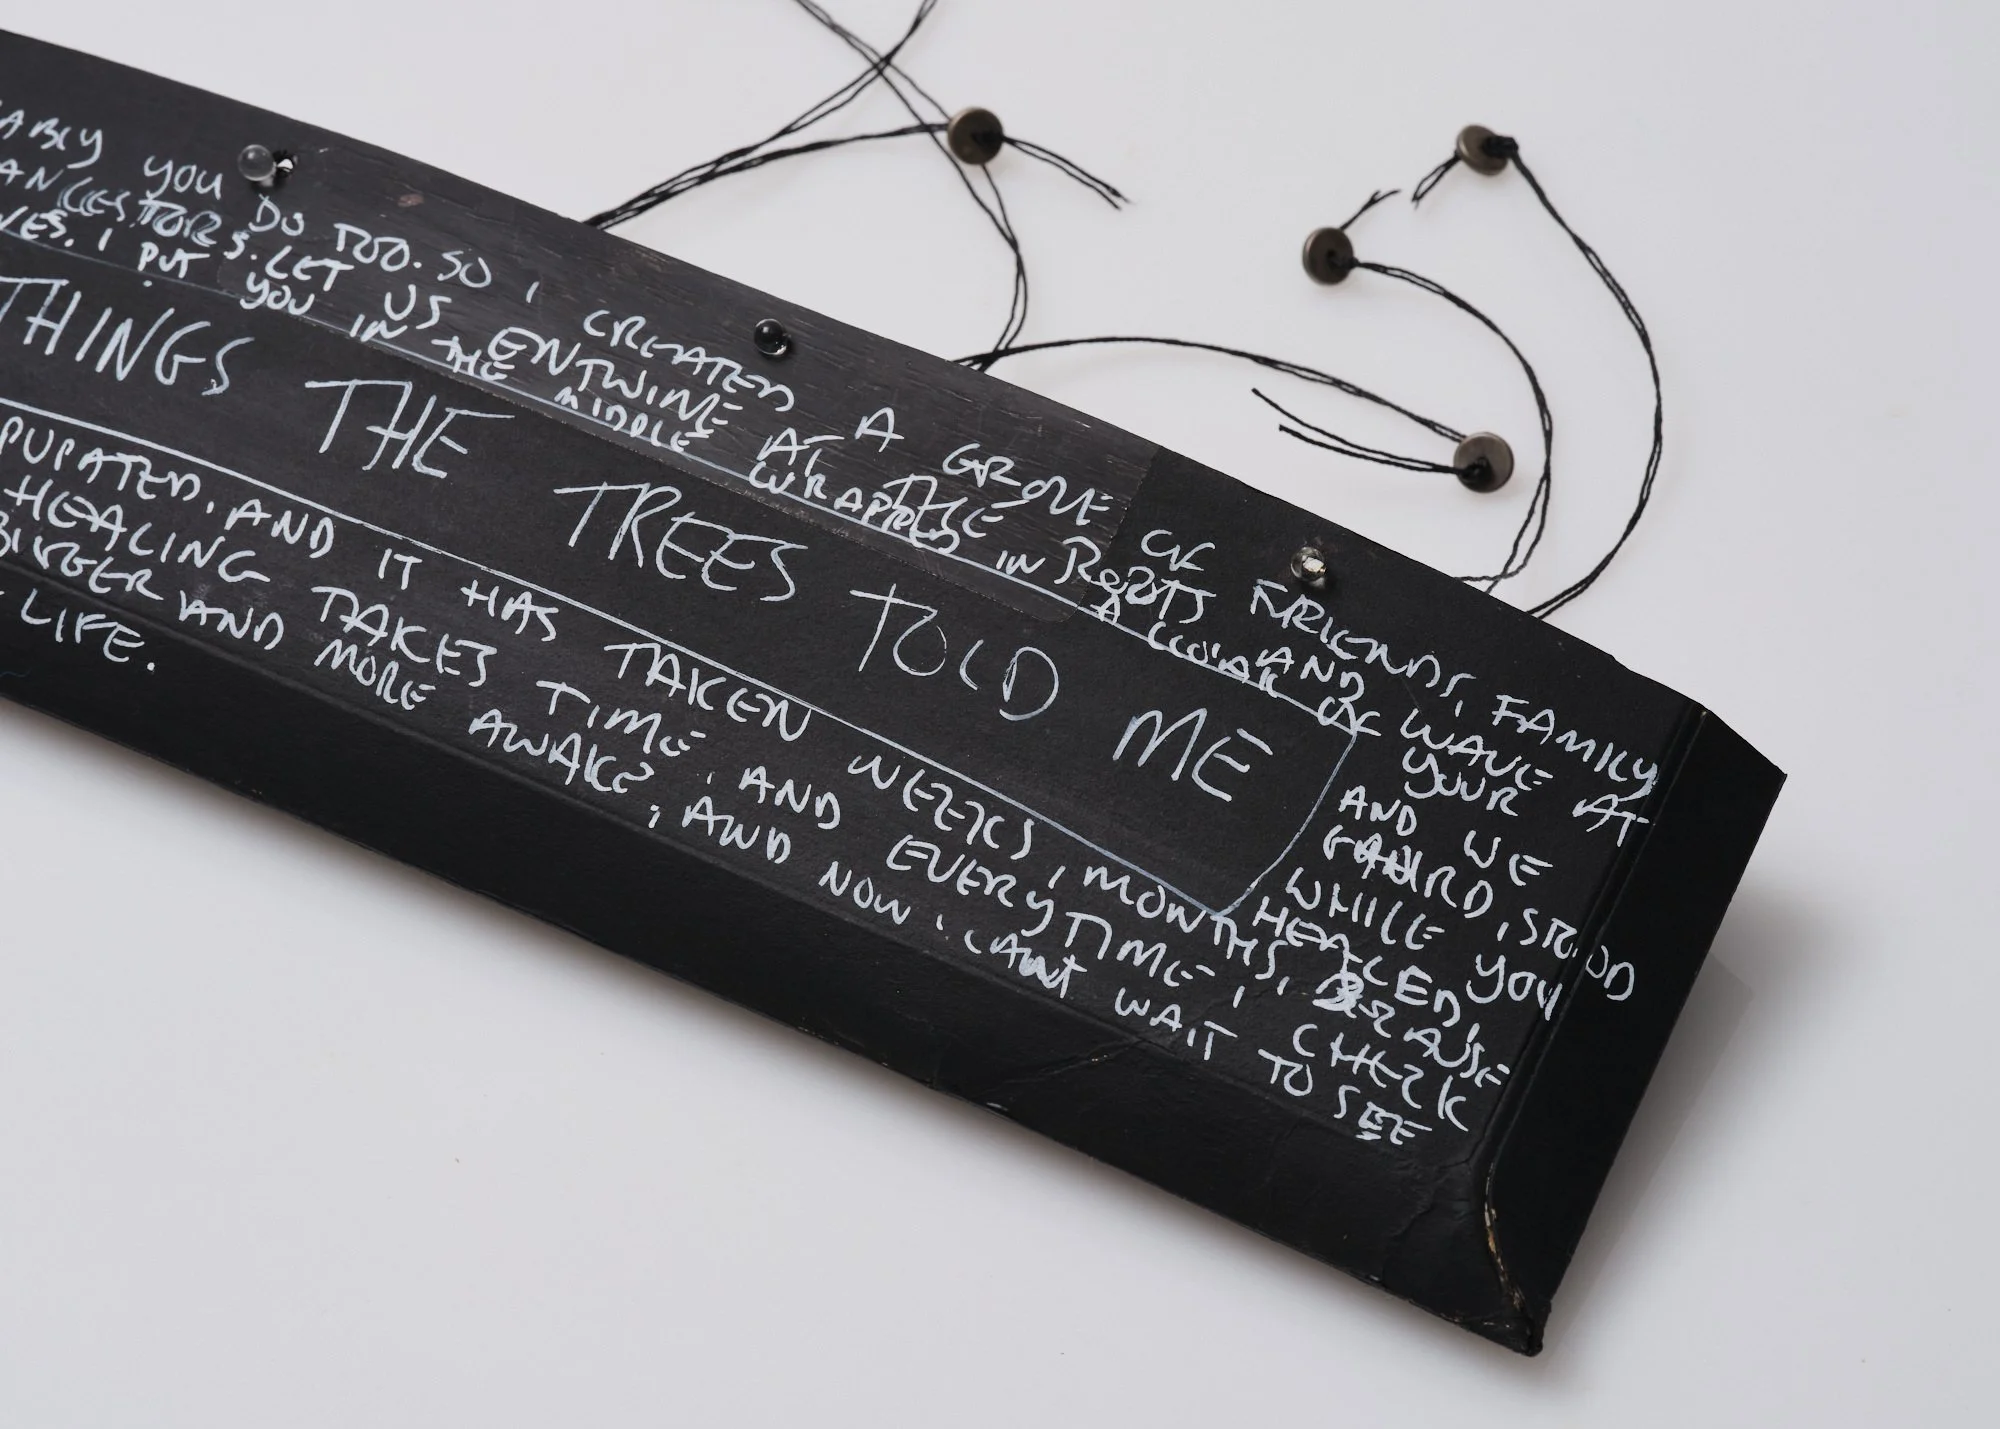 ABLY YOU DO TOO. SO I CREATED A GROVE OF FRIENDS, FAMILY
ANCESTORS. LET US ENTWINE AT THE ROOTS AND WAVE AT
VES. I PUT YOU IN THE MIDDLE WRAPPED IN A CLOAK OF YOUR
THINGS THE TREES TOLD ME
AND WE
GUARD, STOOD
WHILE YOU
HEALED,
PUPATED. AND IT HAS TAKEN WEEKS, MONTHS, BECAUSE
HEALING TAKES TIME. AND EVERYTIME I CHECK
AND MORE AWAKE, AND NOW I CANT WAIT TO SEE
LIFE.